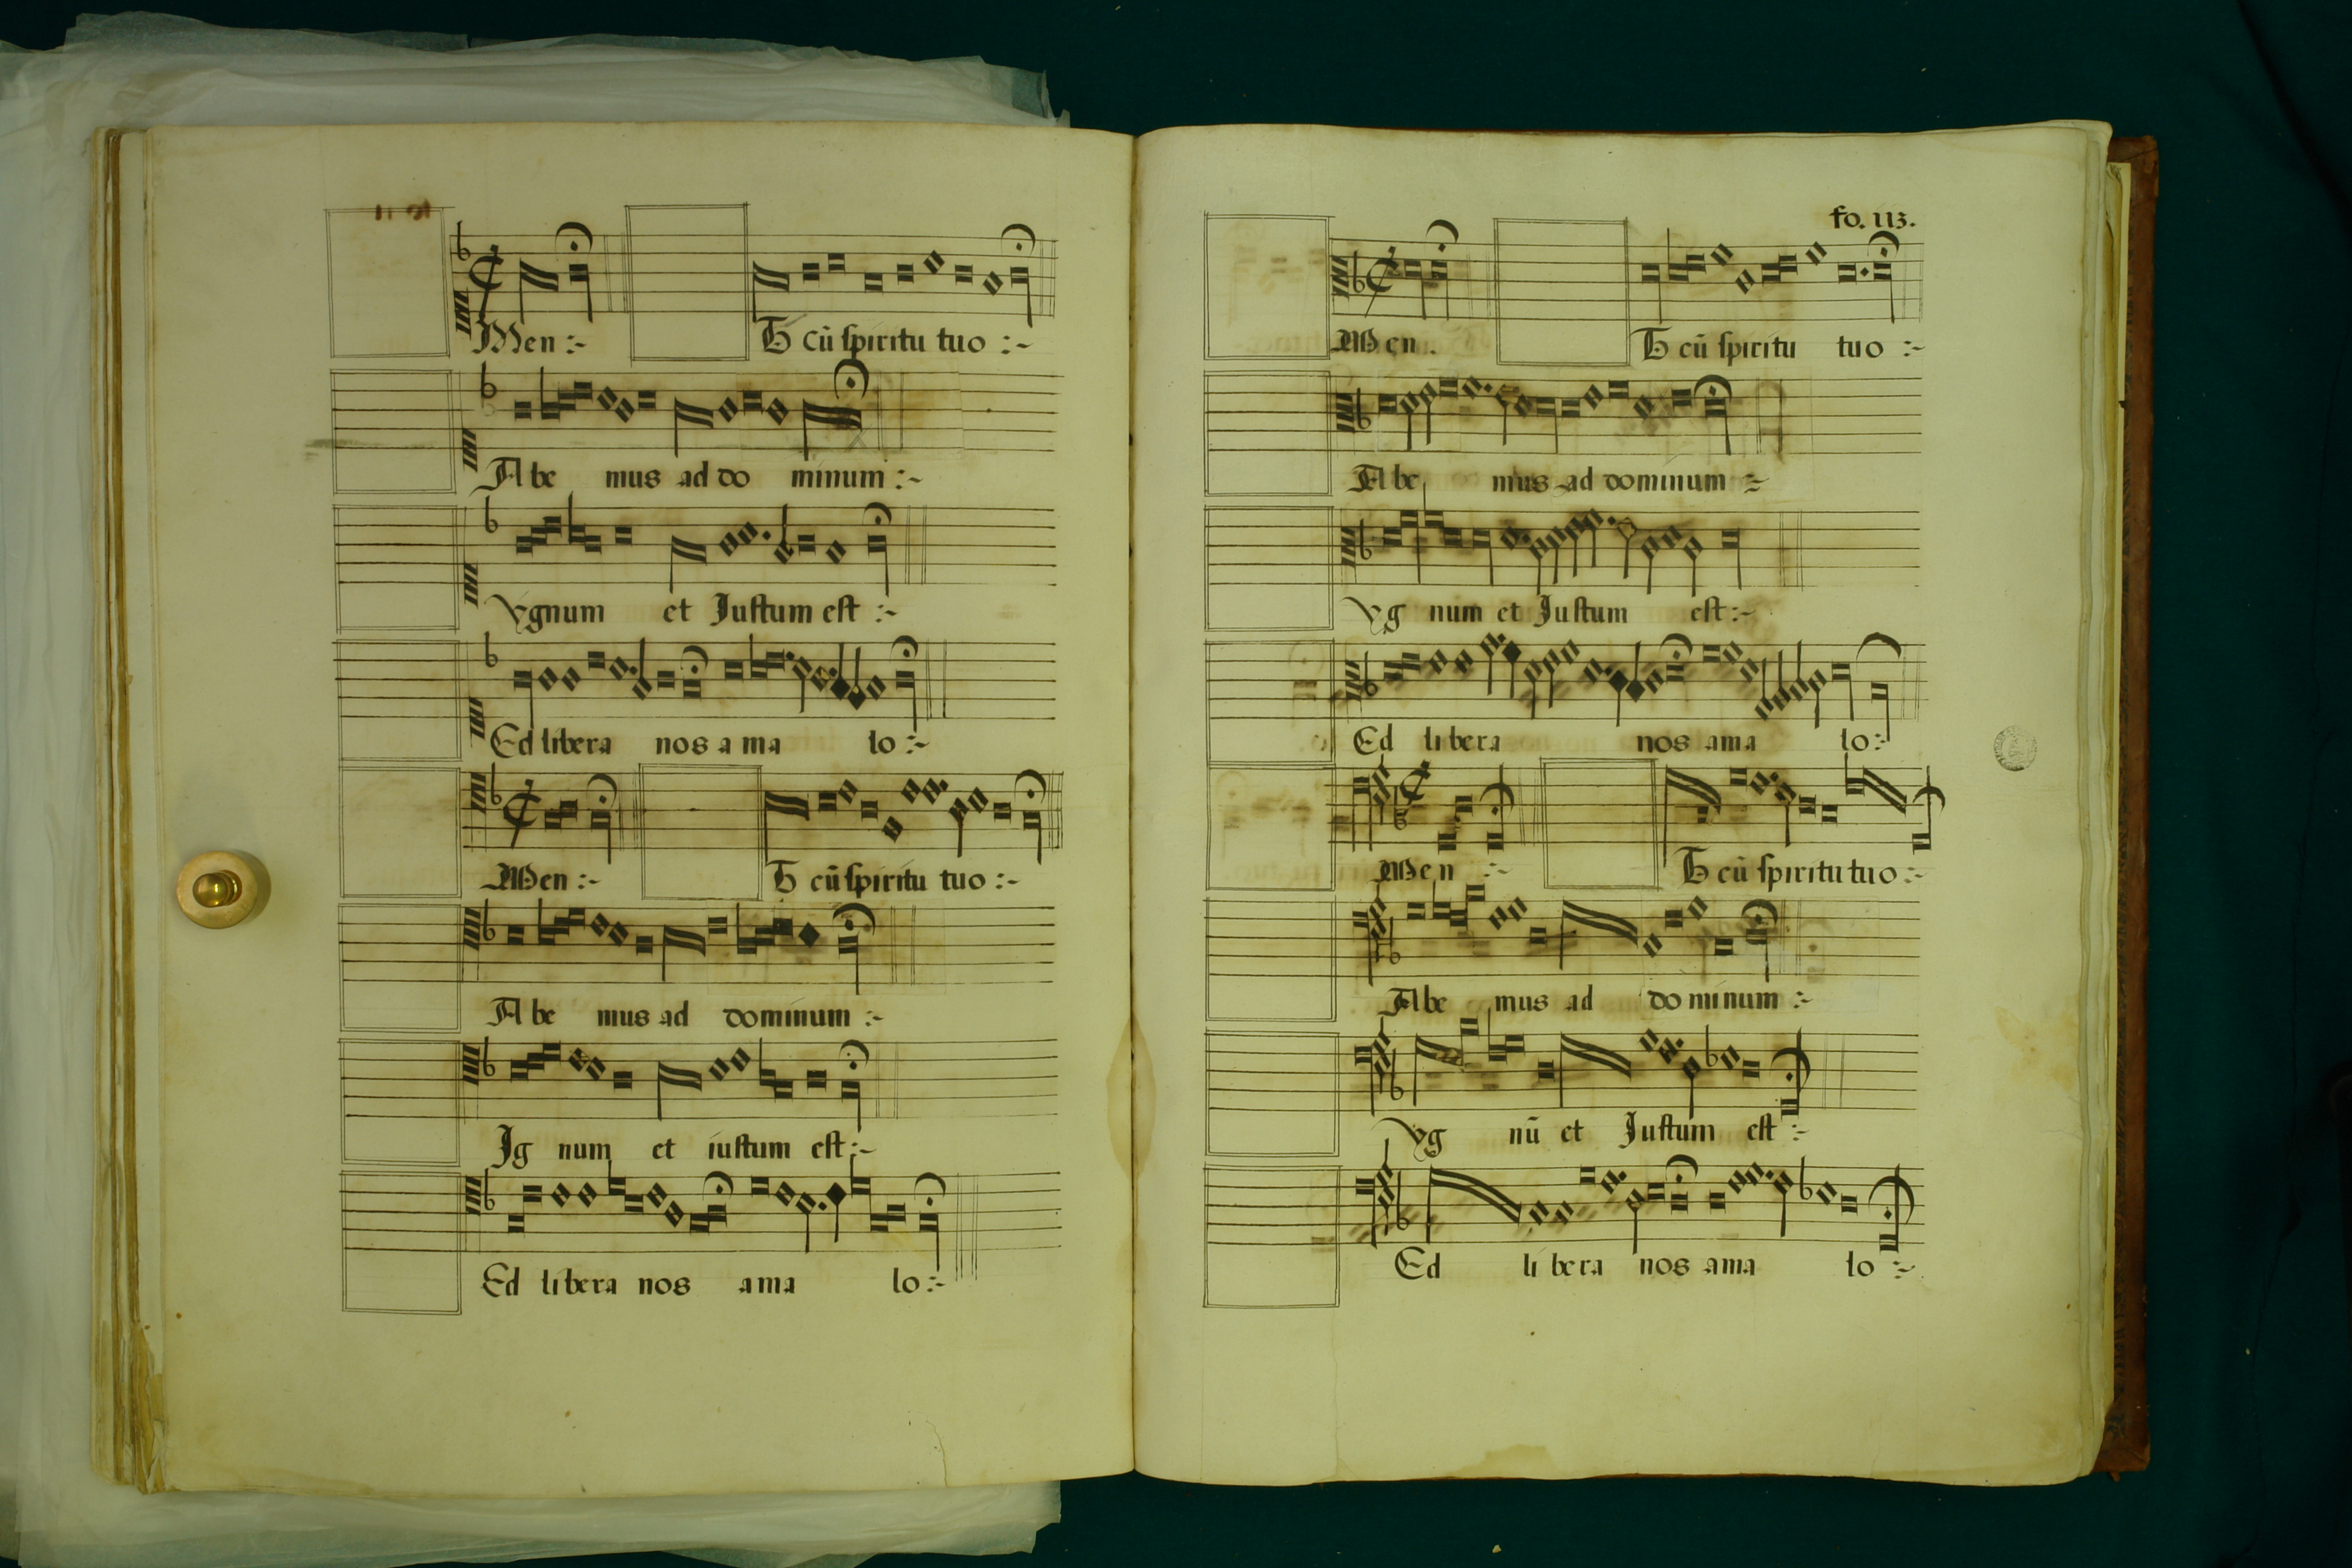 Men :~ Et cũ spiritu tuo :~
Abe mus ad do minum :~
ygnum et Iustum est :~
Ed libera nos a ma lo :~
Men :~ Et cũ spiritu tuo :~
Abe mus ad dominum :~
Ig num et iustum est :~
Ed libera nos ama lo :~
fo. 113.
Men . Et cũ spiritu tuo :~
Abe mus ad dominum :~
yg num et Iustum est :~
Ed libera nos ama lo :~
Men :~ Et cũ spiritu tuo :~
Abe mus ad do minum :~
yg nũ et Iustum est :~
Ed li bera nos ama lo :~